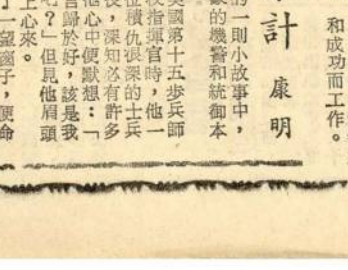 和成功而工作。
計 康明
的一則小故事中，
的機警和統御本
美國第十五步兵師
指揮官時，他一
位積仇很深的士兵
，深知必有許多
他心中便默想：「
言歸於好，該是我
？」但見他眉頭
上心來。
了一望鏡子，便命